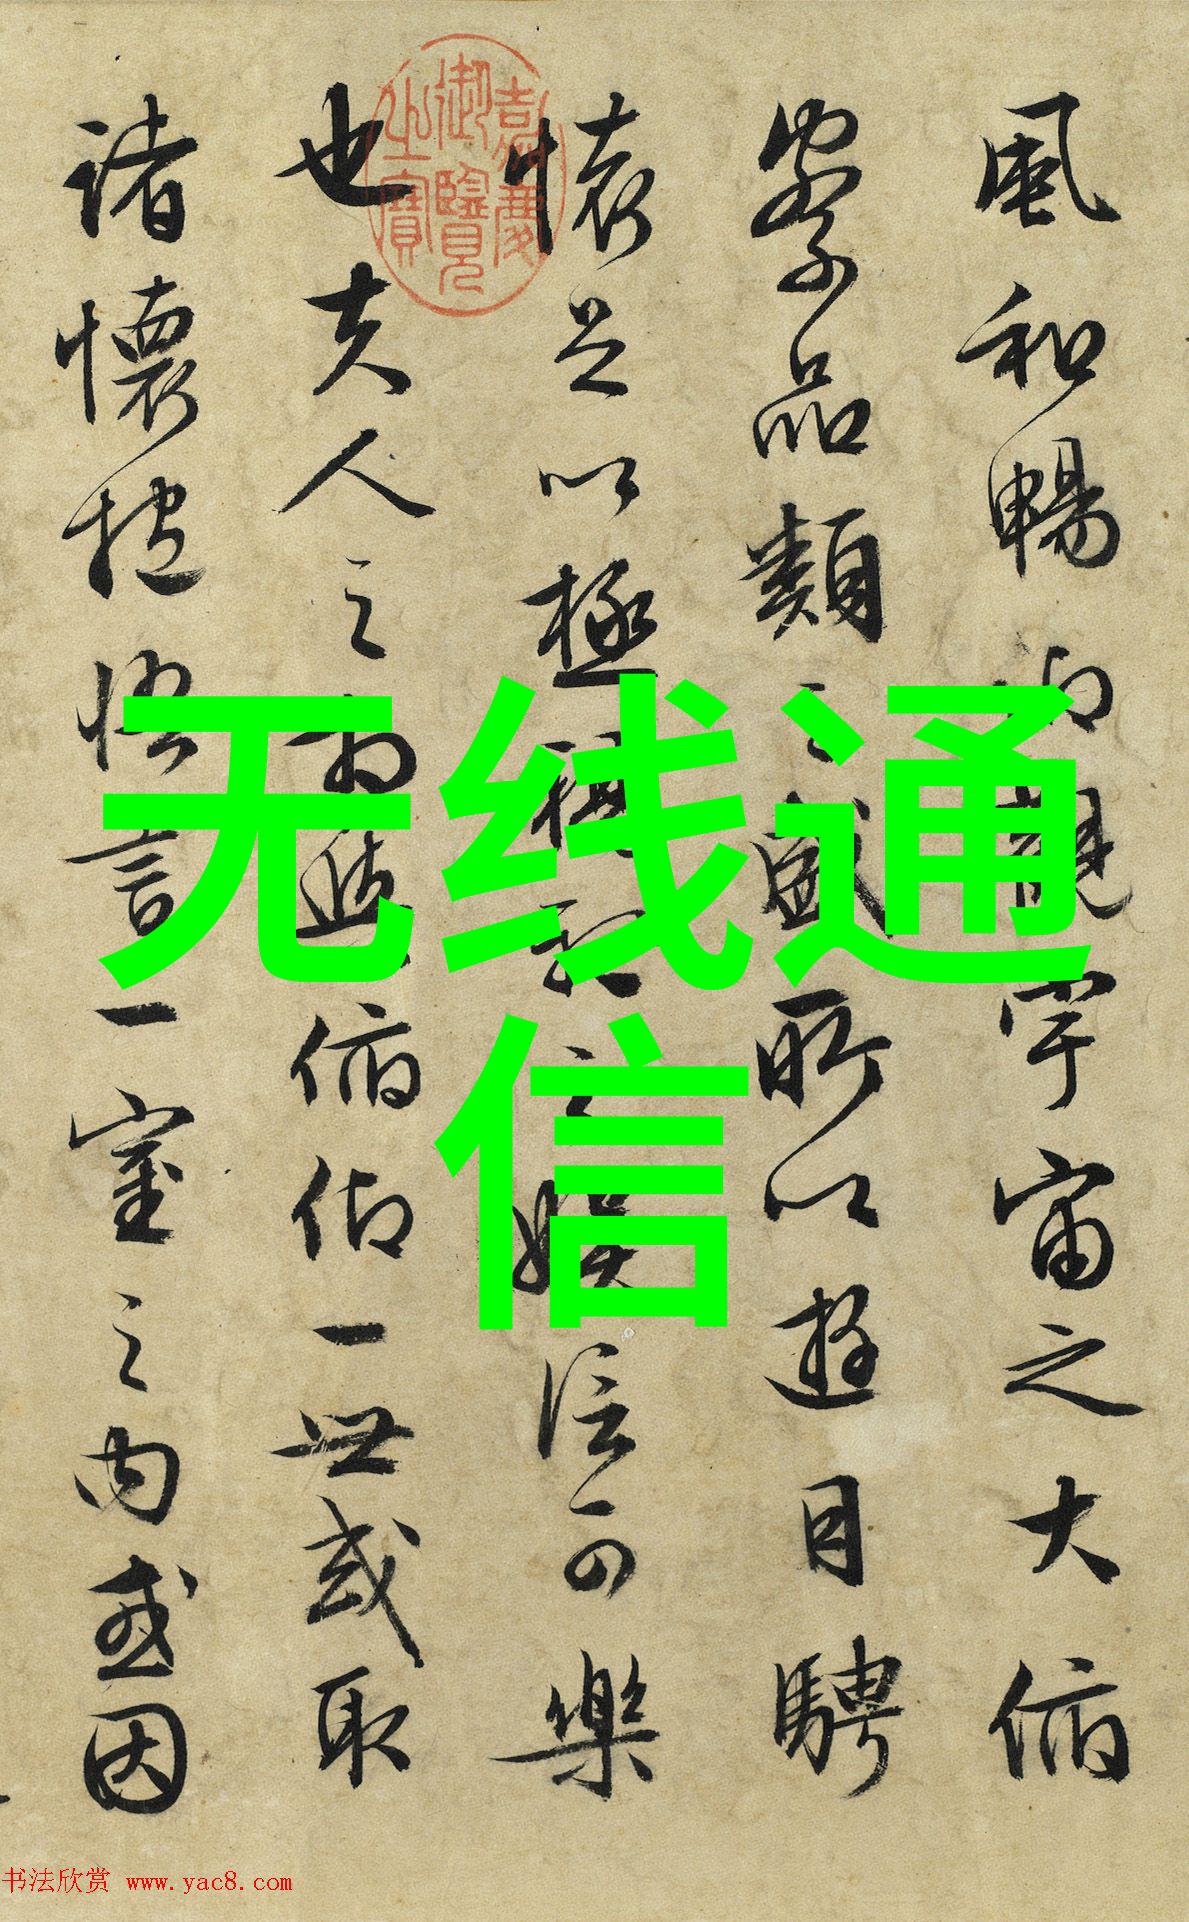 風和暢仰觀宇宙之大俯
察品類之盛所以遊目騁
懷足以極視聽之娛信可樂
也夫人之相與俯仰一世或取
諸懷抱悟言一室之內或因
嘉慶御覽之寶
无线通
信
书法欣赏 www.yac8.com